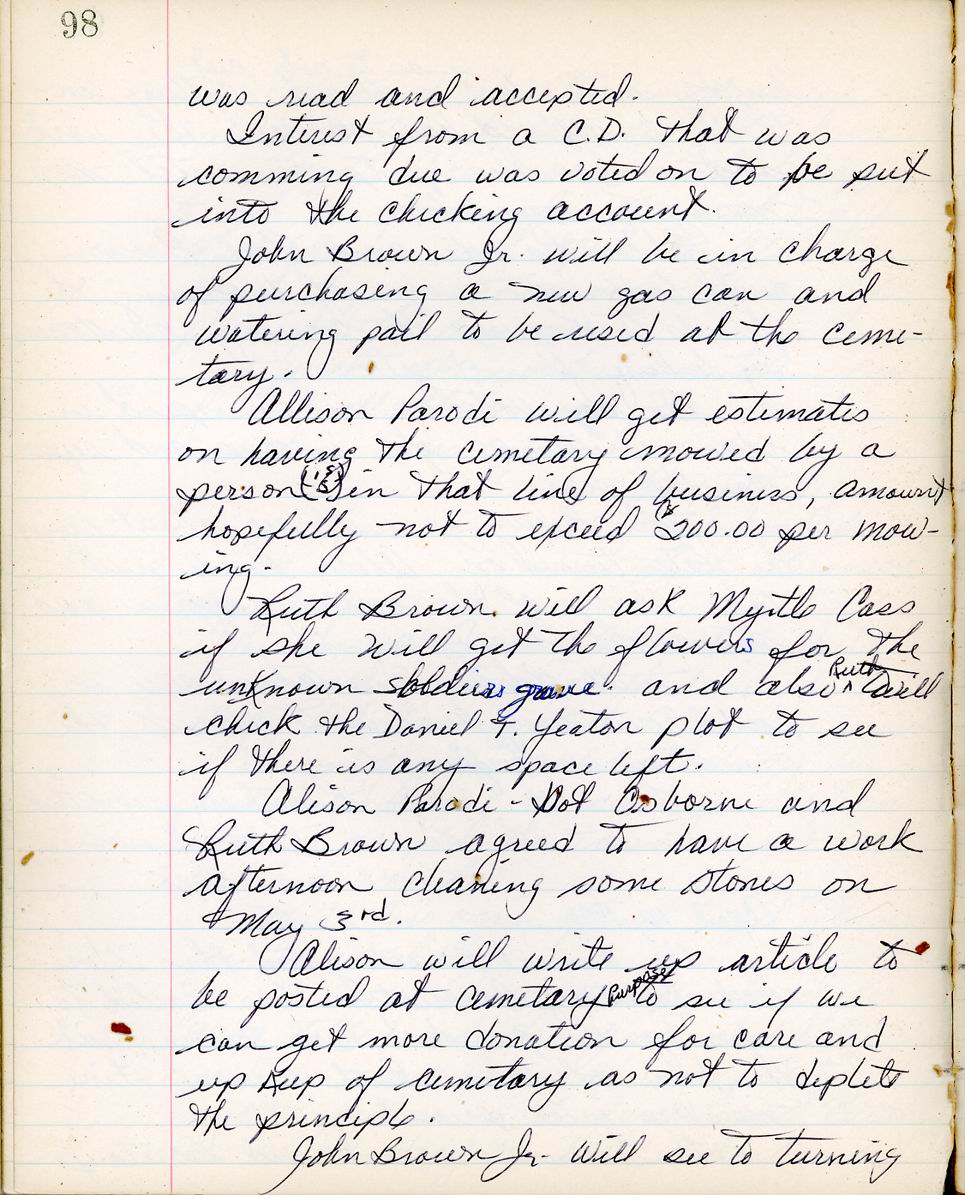 98
was read and accepted.
Interest from a C.D. that was
comming due was voted on to be put
into the checking account.
John Brown Jr. will be in charge
of purchasing a new gas can and
watering pail to be used at the ceme-
tary.
Allison Parodi will get estimates
on having the cemetary mowed by a
person in that line of business, amount
hopefully not to exceed $200.00 per mow-
ing.
Ruth Brown will ask Myrtle Cass
if she will get the flowers for the
unknown soldiers grave. and also Ruth will
check the Daniel T. Yeaton plot to see
if there is any space left.
Alison Parodi - Dot Osborne and
Ruth Brown agreed to have a work
afternoon cleaning some stones on
May 3rd.
Alison will write up article to
be posted at cemetary purpose to see if we
can get more donation for care and
up keep of cemetary as not to deplete
the principle.
John Brown Jr. will see to turning